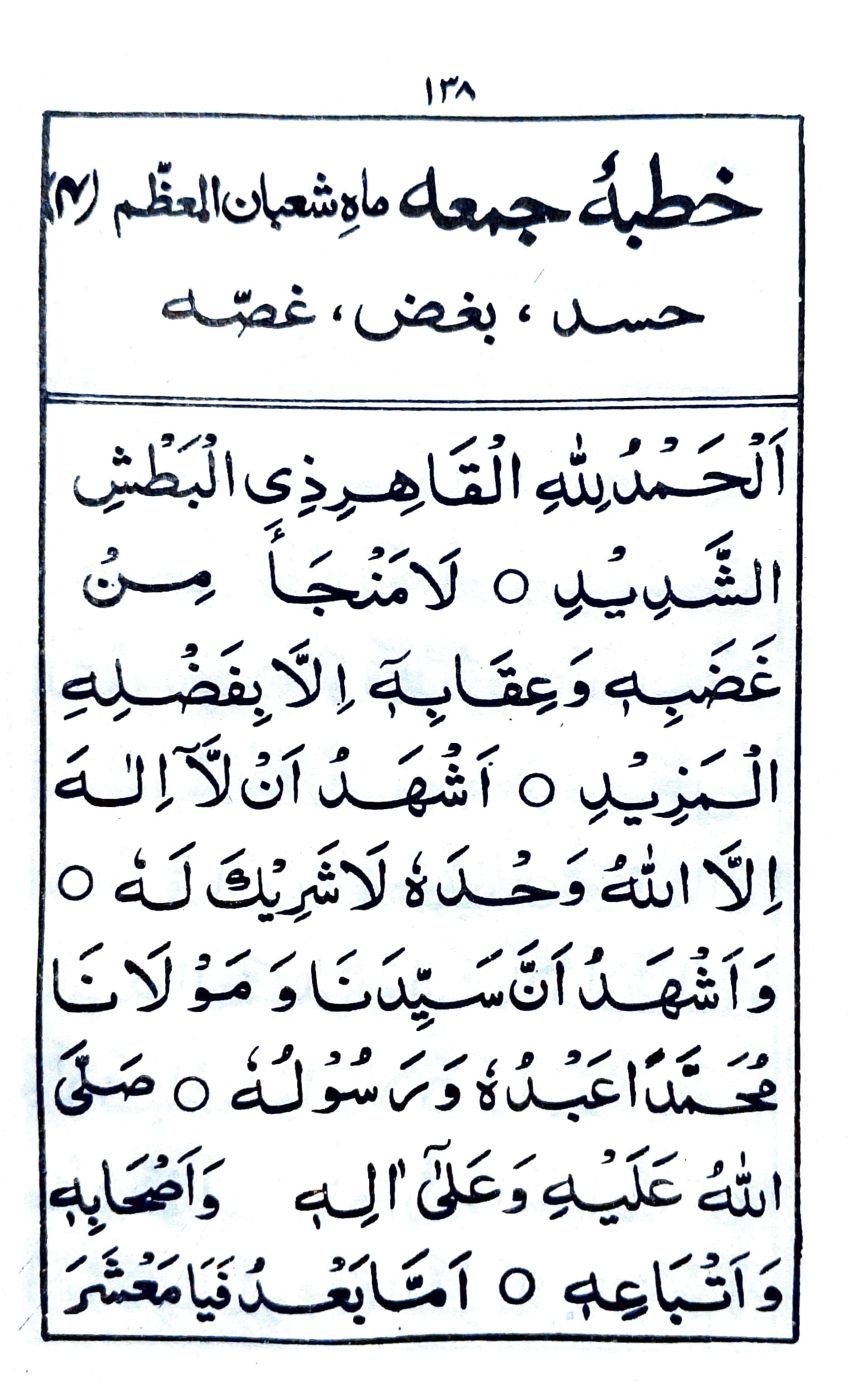 ۱۳۸
خطبهٔ جمعه ماہِ شعبان المعظّم (۴)
حسد ، بغض ، غصّہ
اَلْحَمْدُ لِلّٰهِ الْقَاهِرِ ذِی الْبَطْشِ
الشَّدِيْدِ ○ لَا مَنْجَأَ مِنْ
غَضَبِهٖ وَعِقَابِهٖٓ اِلَّا بِفَضْلِهِ
الْمَزِيْدِ ○ اَشْهَدُ اَنْ لَّآ اِلٰهَ
اِلَّا اللّٰهُ وَحْدَهٗ لَا شَرِيْكَ لَهٗ ○
وَاَشْهَدُ اَنَّ سَيِّدَنَا وَ مَوْلَانَا
مُحَمَّدًا عَبْدُهٗ وَرَسُوْلُهٗ ○ صَلَّى
اللّٰهُ عَلَيْهِ وَعَلٰٓى اٰلِهٖ وَاَصْحَابِهٖ
وَاَتْبَاعِهٖ ○ اَمَّا بَعْدُ فَيَا مَعْشَرَ